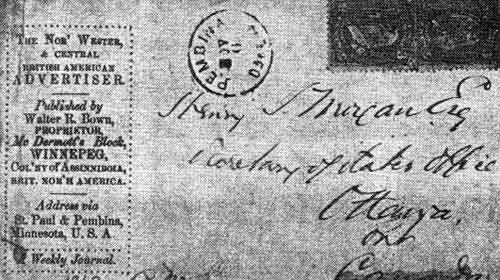 THE NOR' WESTER,
& CENTRAL
BRITISH AMERICAN
ADVERTISER.
Published by
Walter R. Bown,
PROPRIETOR,
Mc Dermott's Block,
WINNEPEG,
COL'NY OF ASSINNIBOIA,
BRIT. NOR'H AMERICA.
Address via
St. Paul & Pembina,
Minnesota, U. S. A
A Weekly Journal.
PEMBINA
Henry J Morgan Esq
Secretary of State's Office
Ottawa,